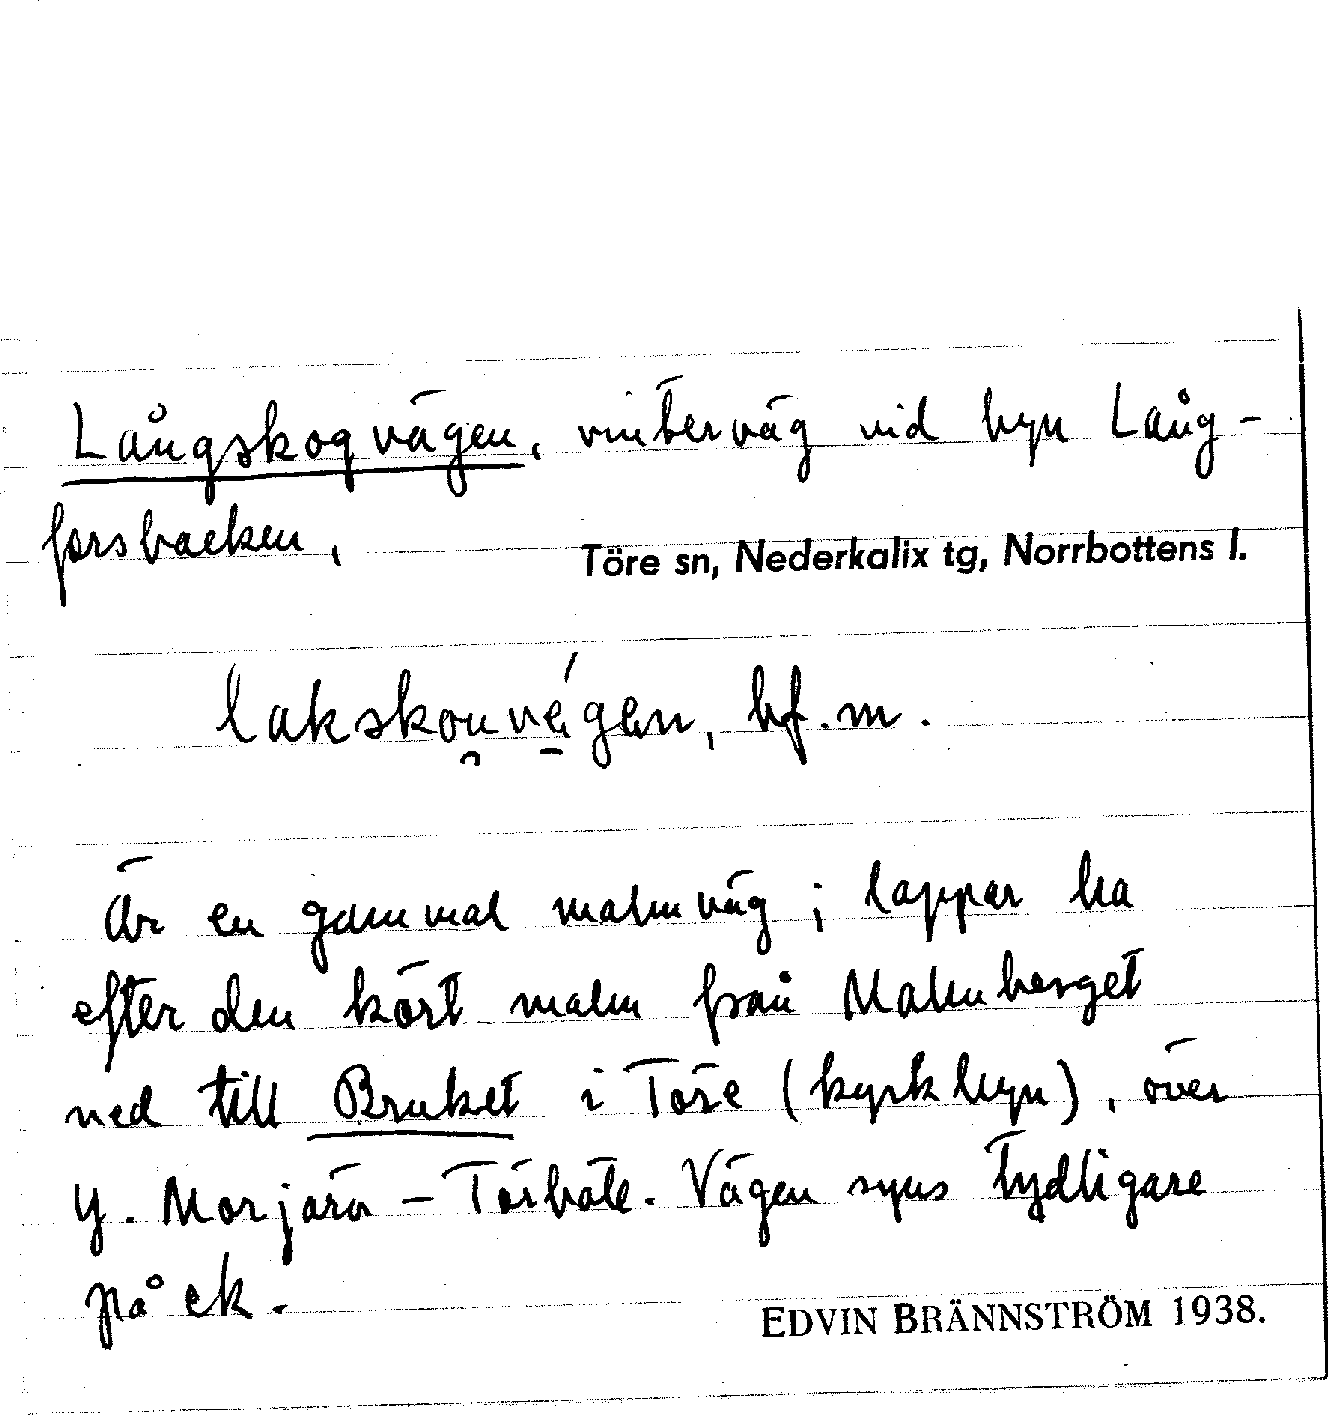 Långskogvägen, vinterväg vid byn Lång-
forsbacken,
Töre sn, Nederkalix tg, Norrbottens l.
bf. m.
Är en gammal malmväg; lappar ha
efter den kört malm från Malmberget
ned till Bruket i Töre (kyrkbyn), över
Y. Morjärv - Törböle. Vägen syns tydligare
på ek.
EDVIN BRÄNNSTRÖM 1938.